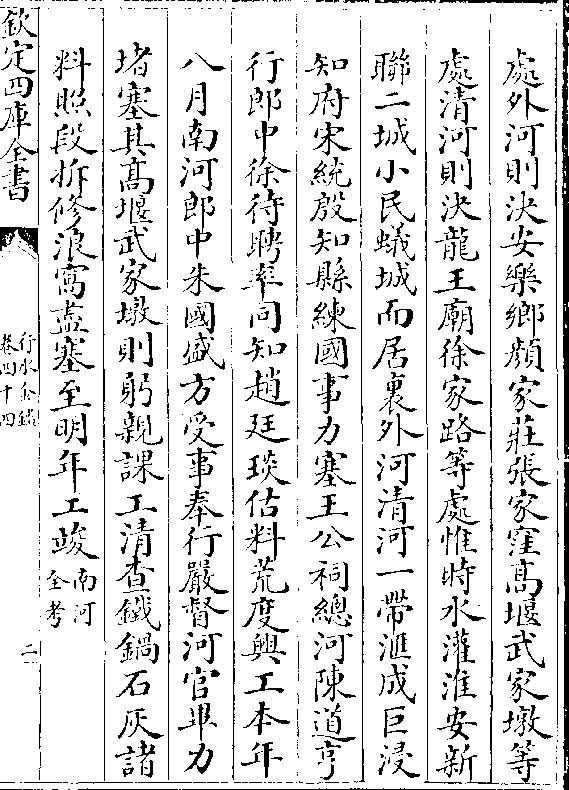 處外河則決安樂鄉顏家莊張家窪高堰武家墩等
處清河則決龍王廟徐家路等處惟時水灌淮安新
聯二城小民蟻城而居裏外河清河一帶滙成巨浸
知府宋統殷知縣練國事力塞王公祠總河陳道亨
行郎中徐待聘率同知趙廷琰估料荒度興工本年
八月南河郎中朱國盛方受事奉行嚴督河官畢力
堵塞其高堰武家墩則躬親課工清查鐵鍋石灰諸
料照段拆修浪窩盡塞至明年工竣南河全考
欽定四庫全書
行水金鑑
卷四十四
二